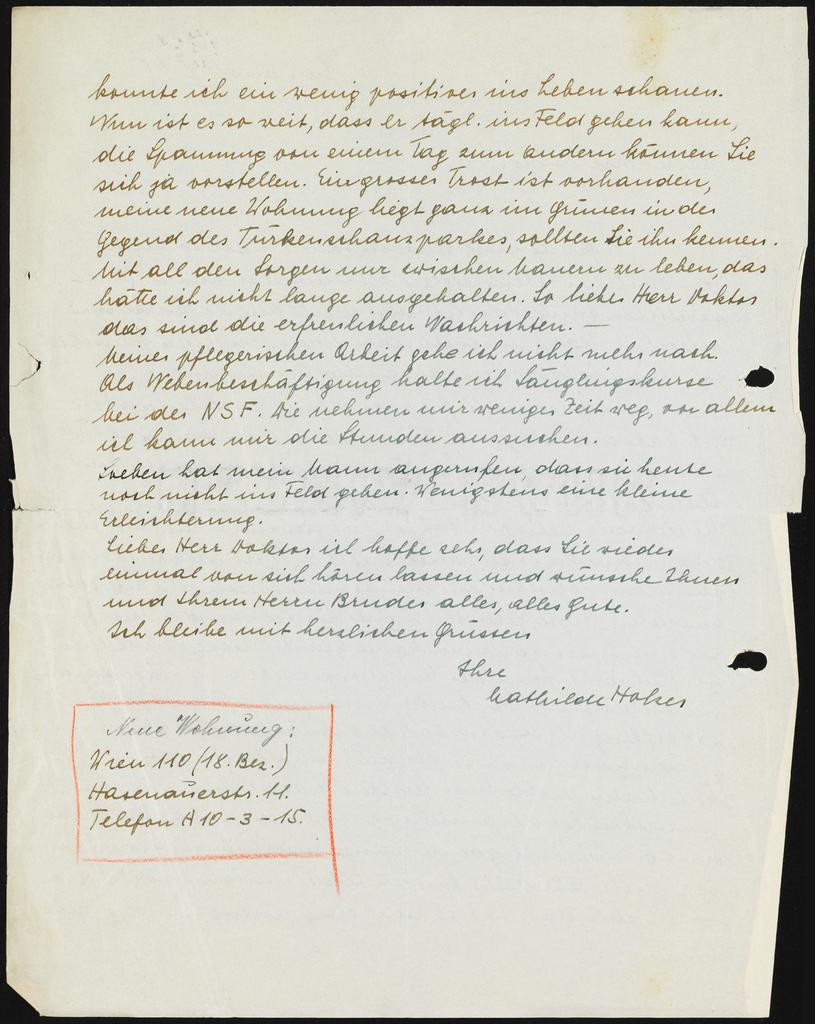 konnte ich ein wenig positiver ins Leben schauen.
Nun ist es so weit, dass er tägl. ins Feld gehen kann,
die Spannung von einem Tag zum andern können Sie
sich ja vorstellen. Ein grosser Trost ist vorhanden,
meine neue Wohnung liegt ganz im Grünen in der
Gegend des Türkenschanzparkes, sollten Sie ihn kennen.
Mit all den Sorgen nur zwischen Mauern zu leben, das
hätte ich nicht lange ausgehalten. So lieber Herr Doktor
das sind die erfreulichen Nachrichten. —
Meiner pflegerischen Arbeit gehe ich nicht mehr nach.
Als Nebenbeschäftigung halte ich Säuglingskurse
bei der NSF. Die nehmen mir weniger Zeit weg, vor allem
ich kann mir die Stunden aussuchen.
Soeben hat mein Mann angerufen, dass sie heute
noch nicht ins Feld gehen. Wenigstens eine kleine
Erleichterung.
Lieber Herr Doktor ich hoffe sehr, dass Sie wieder
einmal von sich hören lassen und wünsche Ihnen
und Ihrem Herrn Bruder alles, alles Gute.
Ich bleibe mit herzlichen Grüssen
Ihre
Mathilde Holzer
Neue Wohnung:
Wien 110 (18. Bez.)
Hasenauerstr. 11.
Telefon A 10-3-15.